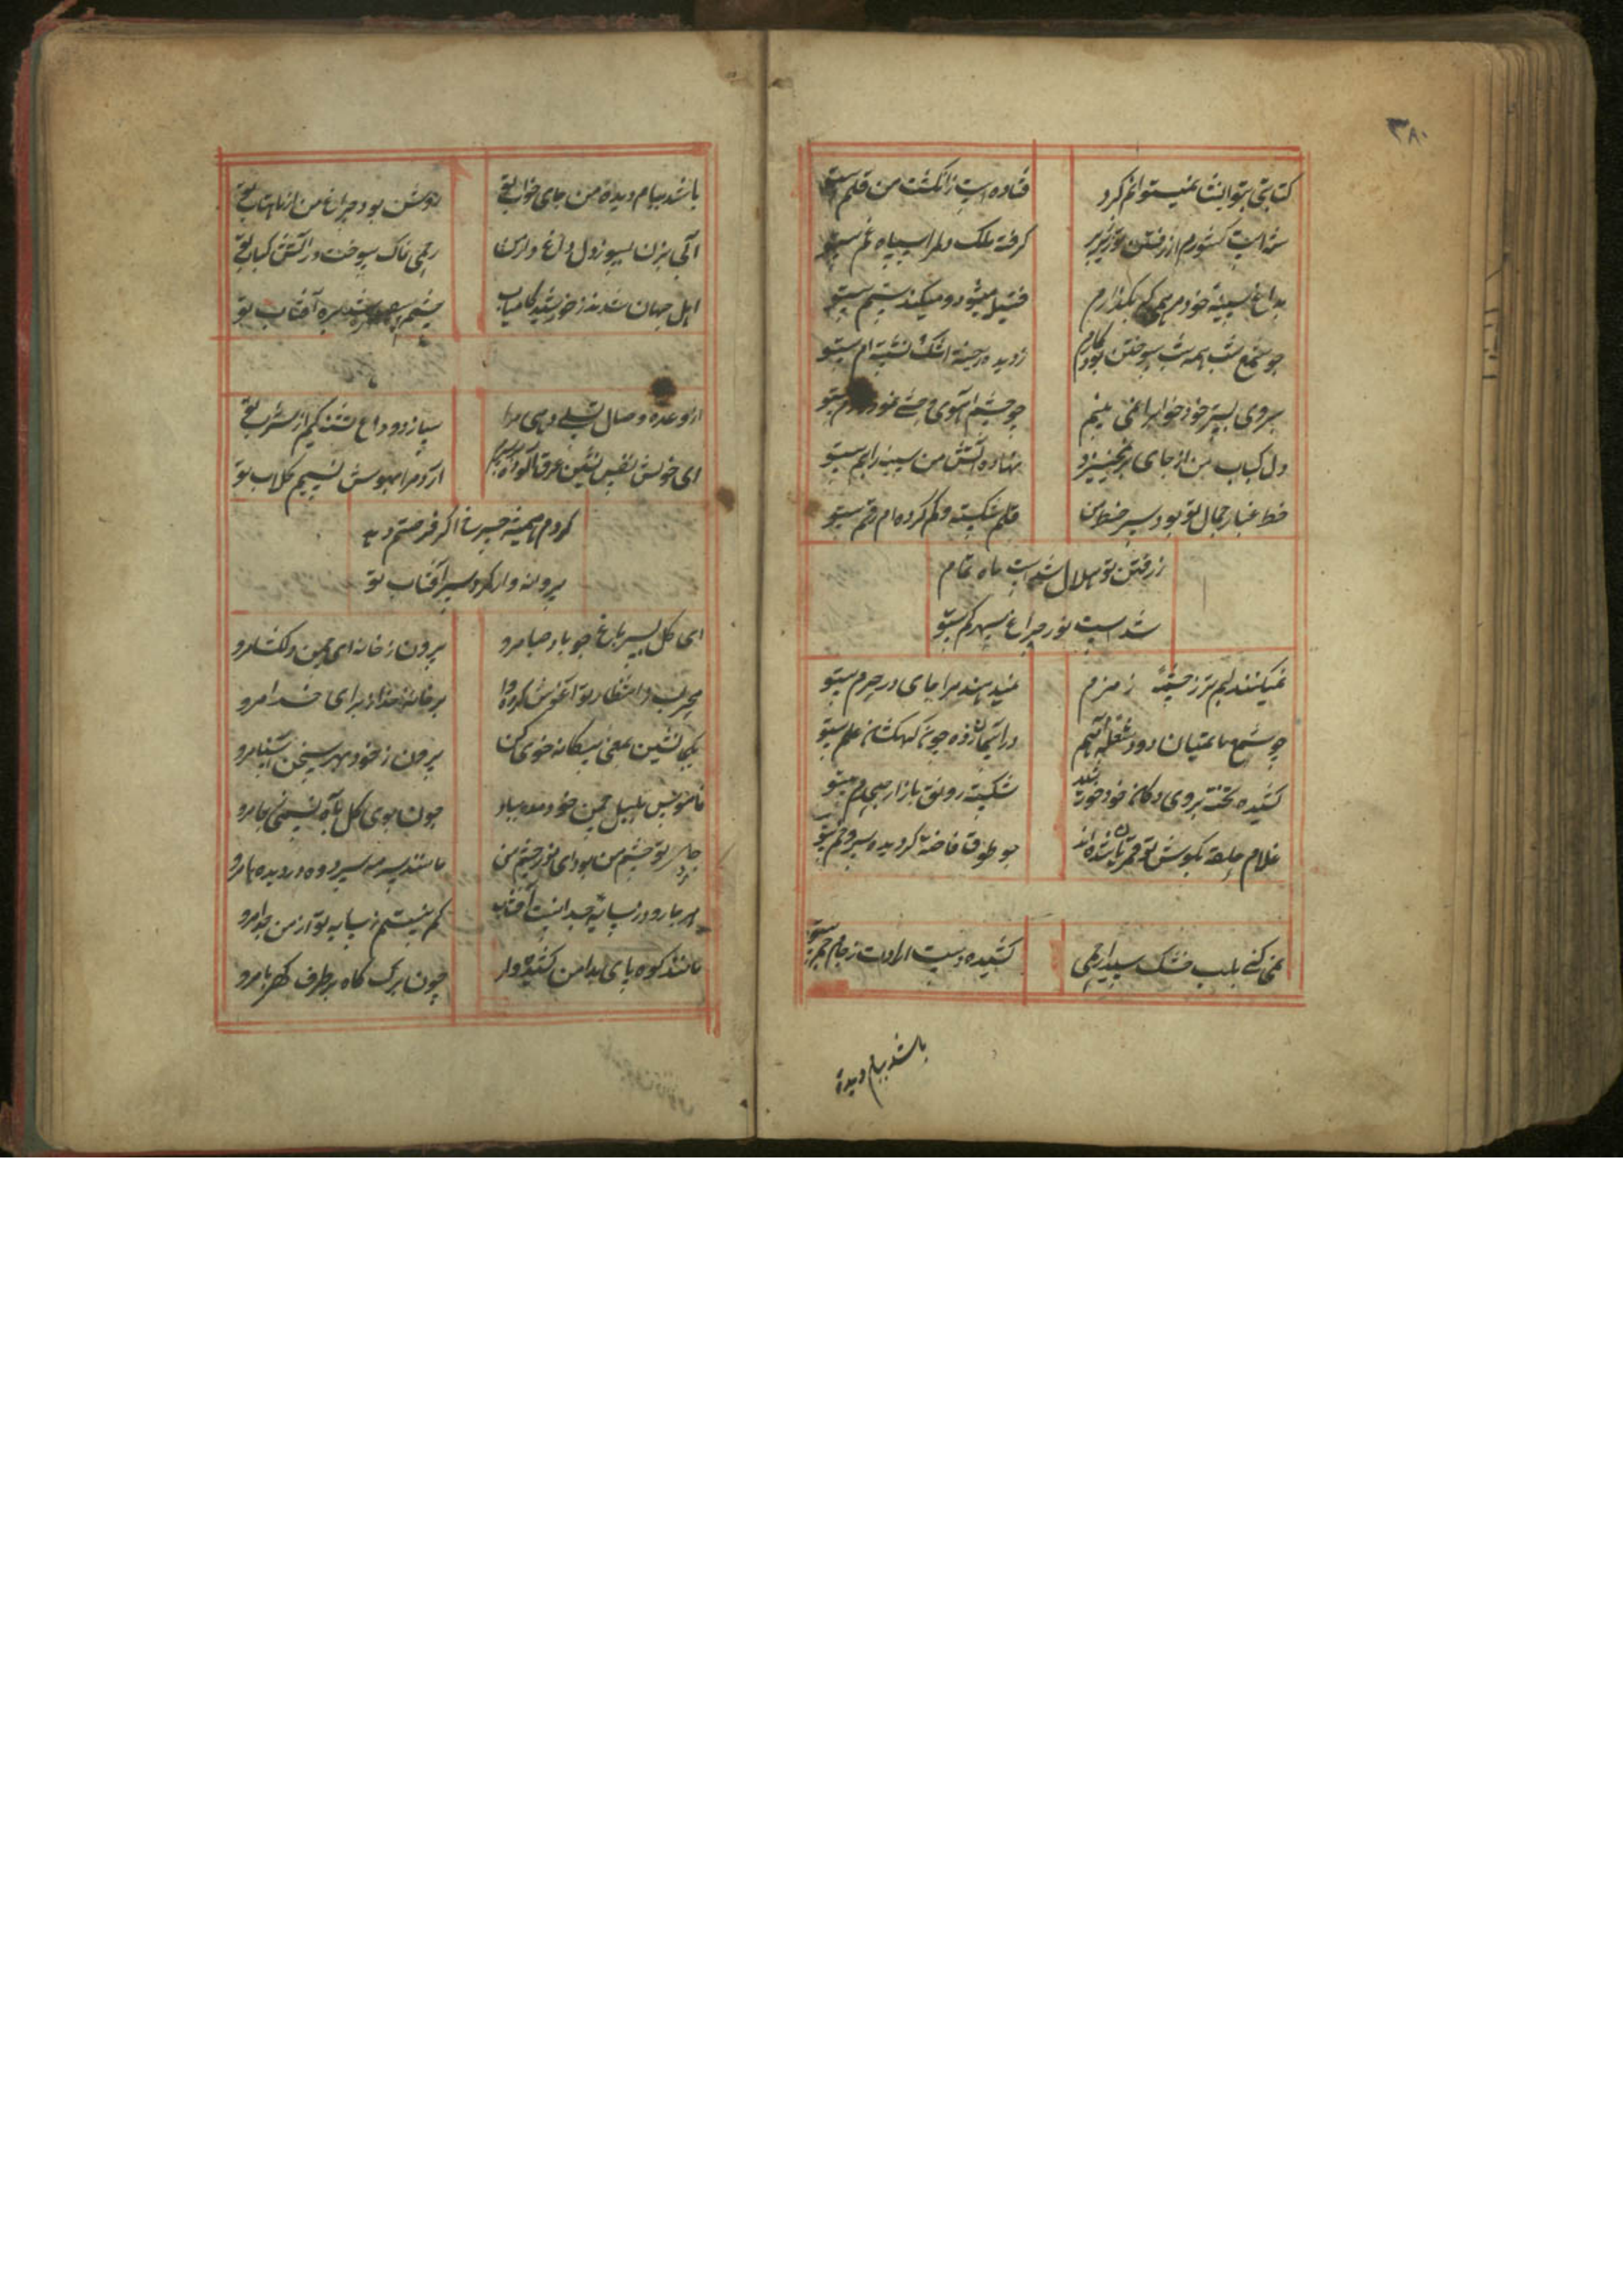 ۳۸۰
کتابتی بتو انشا نمیتوانم کرد
فتاده است ز انگشت من قلم بیتو
شده است کشورم از رفتن تو زیر و زبر
گرفته ملک دلم را سپاه غم بیتو
بداغ سینهٔ خود مرهمی که بگذارم
فتیل میشود و میکند ستم بیتو
چو شمع شب همه شب سوختن بود کارم
ز دیده ریخته اشک نشسته ام بیتو
بروی بستر خود خواب را نمی بینم
چو چشم آهوی وحشی بیتو
دل کباب من از جای بر نمیخیزد
نهاده آتش من سینه را بهم بیتو
خط غبار جمال تو بود سر خط من
قلم شکسته و گم کرده ام رقم بیتو
ز رفتن تو هلال شد است ماه تمام
شد است نور چراغ سپهر کم بیتو
نمیکنند لبم تر ز چشمهٔ زمزم
نمیدهند مرا جای در حرم بیتو
چو شمع ماتمیان دود شعلهٔ آهم
در آسمان زده چون کهکشان علم بیتو
کشیده تخته بروی دکان خود خورشید
شکسته رونق بازار صبحدم بیتو
غلام حلقه بگوش تو قمریان شده اند
چو طوق فاخته گردیده سرو خم بیتو
نمی کنی بلب خشک سیدا رحمی
کشیده دست ارادت ز جام جم بیتو
باشد بیام دیدهٔ
باشد بیام دیدهٔ من جای خواب تو
روشن بود چراغ من از ماهتاب تو
آبی بزن بسوز دل داغ دار من
رحمی که پاک سوخت در آتش کباب تو
اهل جهان شدند ز خورشید کامیاب
چشمم آفتاب تو
از وعده وصال تسلی دهی مرا
سیاره دو داغ تشنه کیم از سراب تو
ای خوش نفس نشین عرق آلوده
آرد مرا بهوش نسیم گلاب تو
گردم همیشه چرخ اگر فرصتم دهد
پروانه وار گرد سر آفتاب تو
ای گل بسیر باغ چو باد صبا مرو
بیرون ز خانه ای چمن دلگشا مرو
محراب در انتظار تو آغوش کرده وا
بر خانهٔ خدا ز برای خدا مرو
یکجا نشین بمعنی بیگانه خوی کن
بیرون ز خود بهر سخن آشنا مرو
ناموس بلبل چمن خود مده بباد
چون بوی گل بآه نسیمی ز جا مرو
جای تو چشم من بود ای نور چشم من
مانند سرمه سر زده در دیده ها مرو
هر جا رود ز سایه جدا نیست آفتاب
کم نیستم ز سایه تو از من جدا مرو
مانند کوه پای بدامن کشیده دار
چون برگ کاه بر طرف کهربا مرو